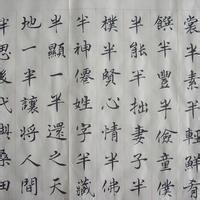 裳半素半輕鮮肴
饌半豐半儉童僕
半能半拙妻子半
樸半賢心情半佛
半神僊姓字半藏
半顯一半還之天
地一半讓將人間
半思後代與桑田